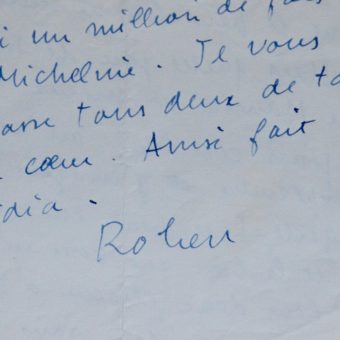 i un million de fois
Micheline. Je vous
asse tous deux de to
cœur. Ainsi fait
dia.
Robert